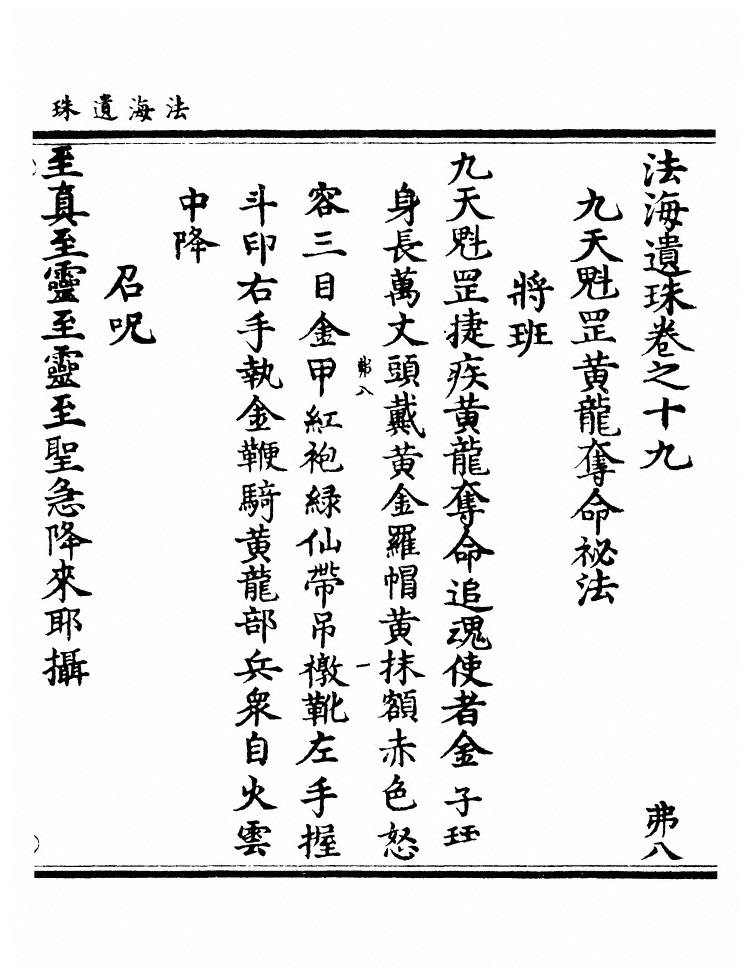 法海遺珠
法海遺珠卷之十九 弗八
九天魁罡黃龍奪命祕法
將班
九天魁罡捷疾黃龍奪命追魂使者金子珏
身長萬丈頭戴黃金羅帽黃抹額赤色怒
弗八 一
容三目金甲紅袍緑仙帶吊㯳靴左手握
斗印右手執金鞭騎黃龍部兵衆自火雲
中降
召呪
至真至靈至靈至聖急降來耶攝